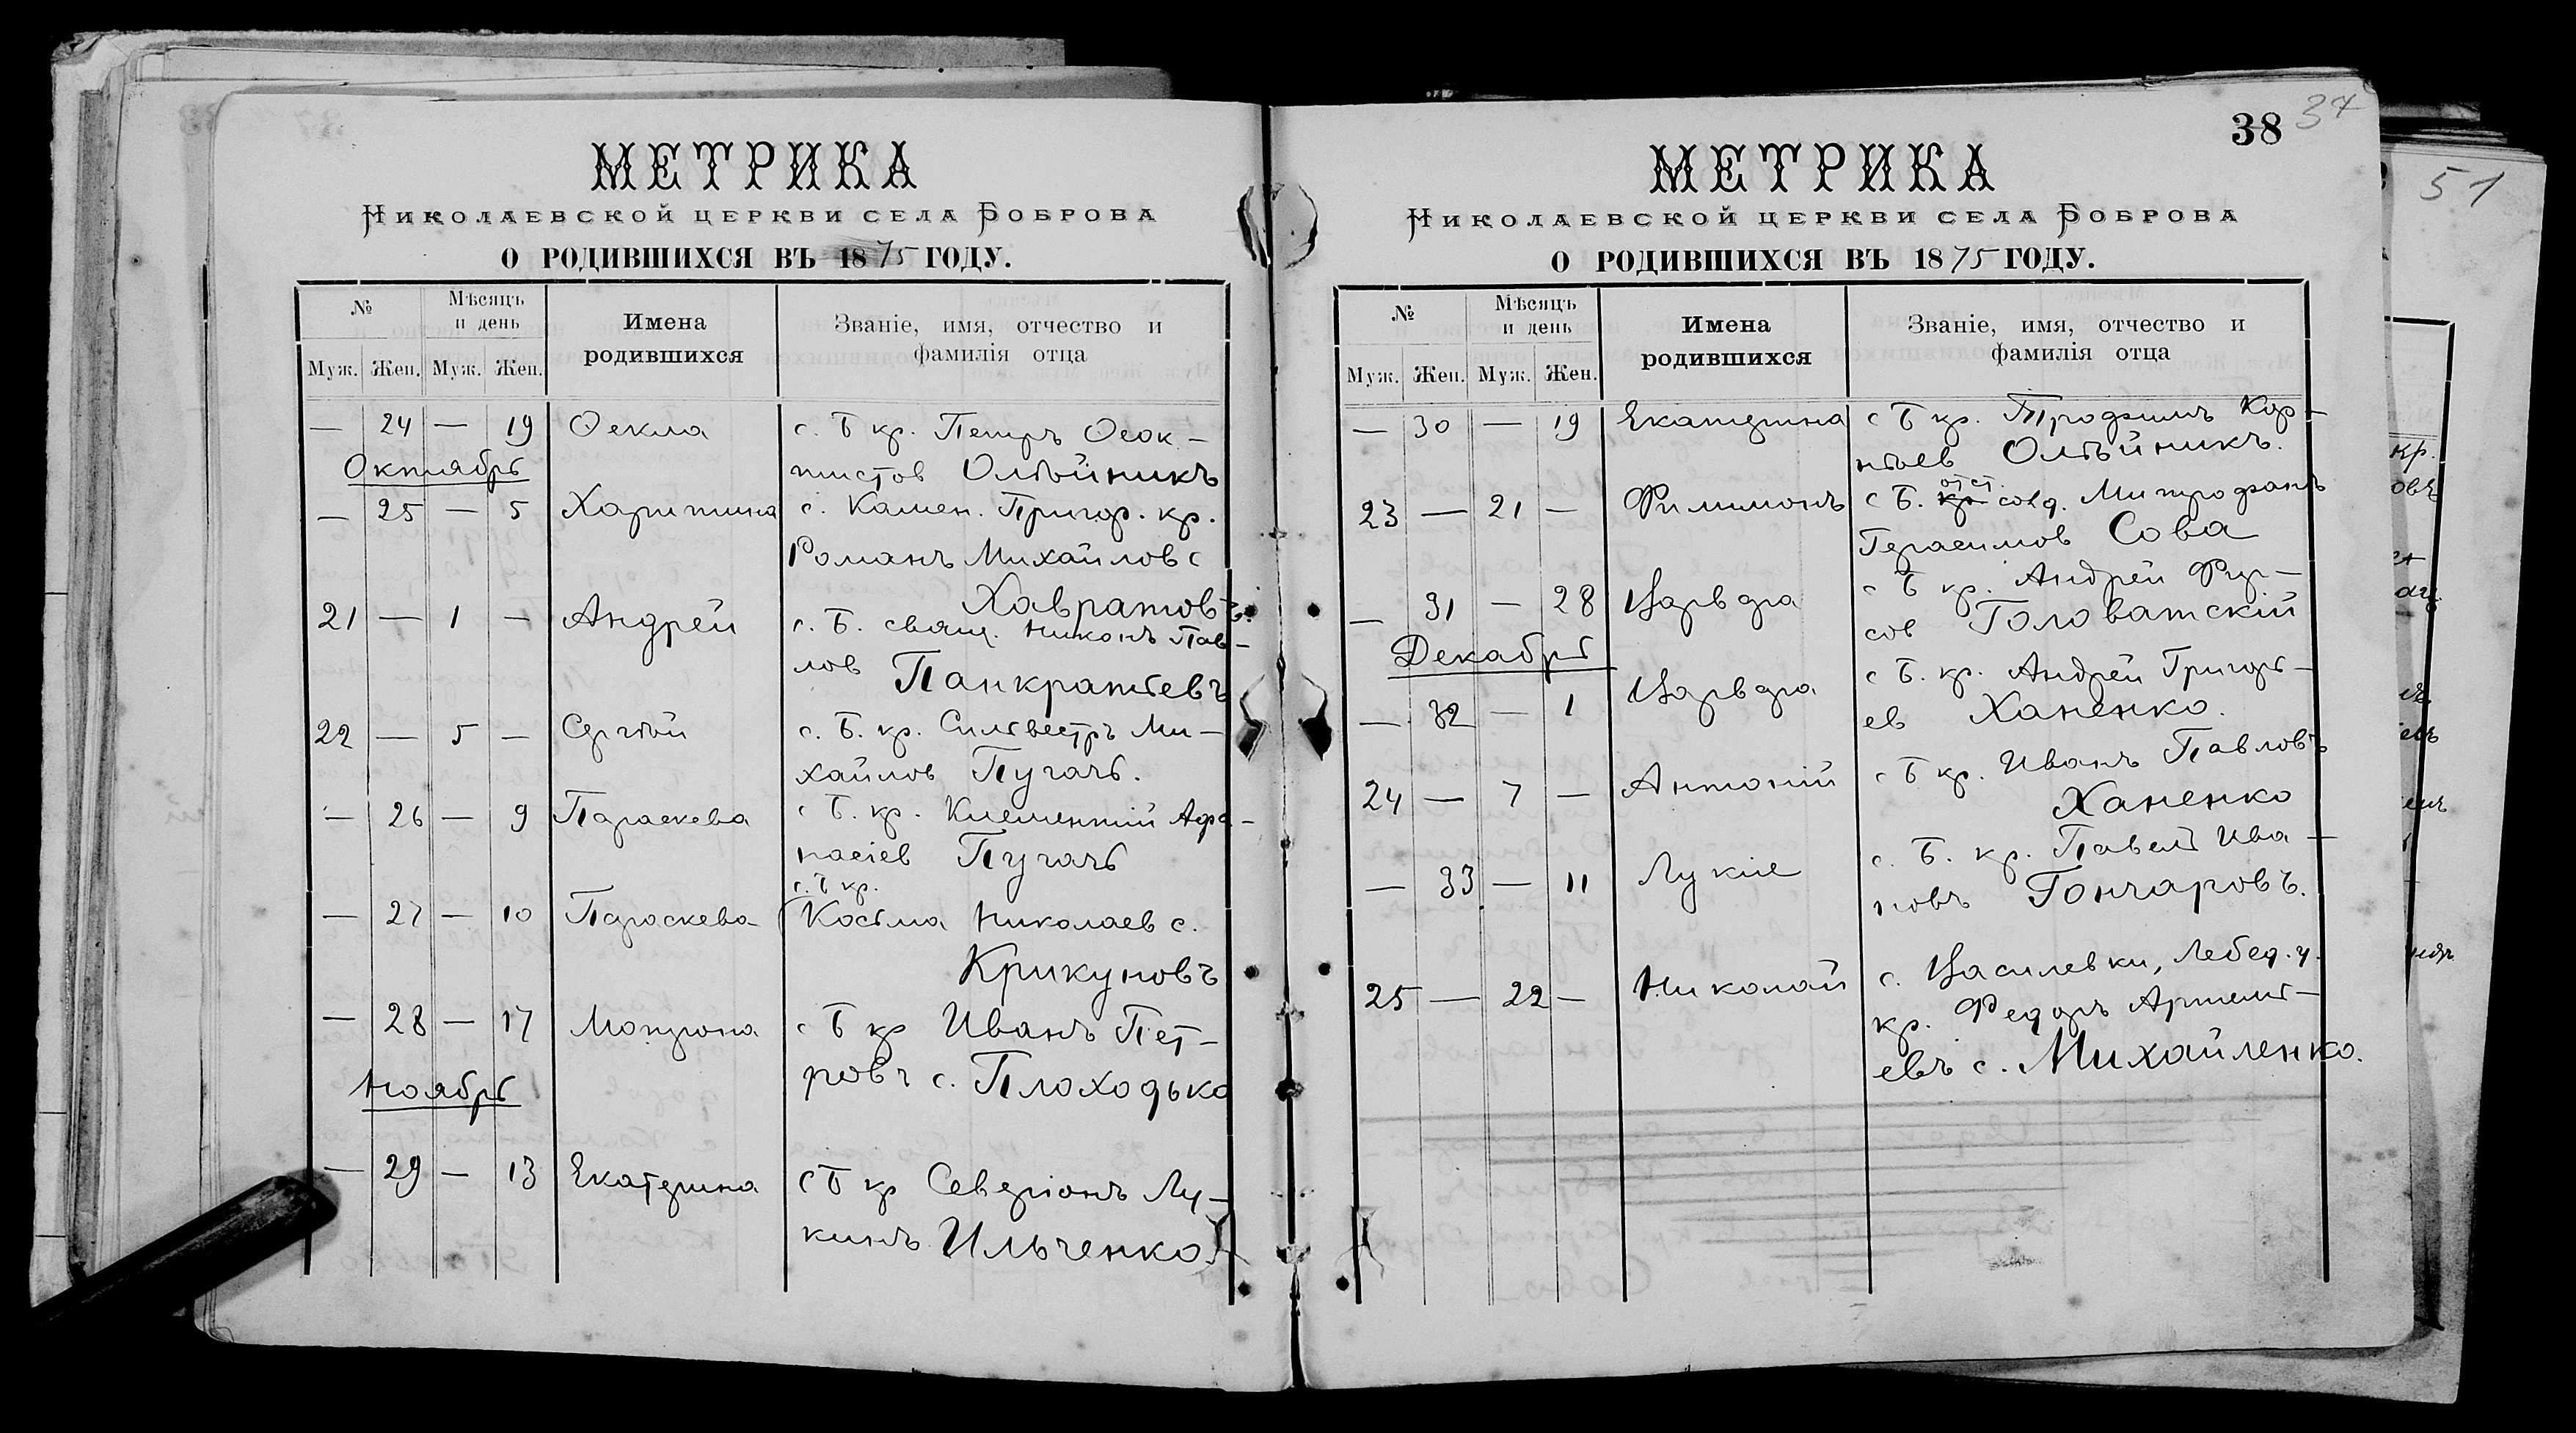 МЕТРИКА
НИКОЛАЕВСКОЙ ЦЕРКВИ СЕЛА БОБРОВА
О РОДИВШИХСЯ ВЪ 1875 ГОДУ.
№ Мѣсяцъ и день Имена родившихся Званіе, имя, отчество и фамилія отца
Муж. Жен. Муж. Жен.
— 24 — 19 Ѳекла с. Б кр. Петръ Ѳеок-
Октябрь тистов Олѣйникъ
— 25 — 5 Харитина с. Камен. Пригор. кр.
Романъ Михайлов с
Хавратовъ.
21 — 1 — Андрей с. Б. свящ. Никонъ Пав-
лов Панкратьевъ
22 — 5 — Сергѣй с. Б. кр. Сильвестръ Ми-
хайлов Пугачь.
— 26 — 9 Параскева с Б. кр. Климентий Афа-
насіев Пугачь
с. Б кр.
— 27 — 10 Параскева Косьма Николаев с.
Крикуновъ
— 28 — 17 Матрона с Б кр Иванъ Пет-
ровъ с. Плоходько
Ноябрь
— 29 — 13 Екатерина с Б кр Северіонъ Лу-
кинъ Ильченко.
38 37
МЕТРИКА
НИКОЛАЕВСКОЙ ЦЕРКВИ СЕЛА БОБРОВА
О РОДИВШИХСЯ ВЪ 1875 ГОДУ.
№ Мѣсяцъ и день Имена родившихся Званіе, имя, отчество и фамилія отца
Муж. Жен. Муж. Жен.
— 30 — 19 Екатерина с Б кр. Трофимъ Кор-
нѣев Олѣйникъ.
отст.
23 — 21 — Филимонъ с Б. кр солд. Митрофанъ
Герасимов Сова
— 31 — 28 Варвара с Б кр. Андрей Фир-
сов Головатскій
Декабрь
— 32 — 1 Варвара с Б. кр. Андрей Григорь-
ев Ханенко.
24 — 7 — Антоній с Б кр. Иванъ Павловъ
Ханенко
— 33 — 11 Лукіе с. Б. кр. Павелъ Ива-
новъ Гончаровъ.
25 — 22 — Николай с. Василевки, Лебед. у.
кр. Федоръ Артемь-
евъ с. Михайленко.
51
кр.
овъ